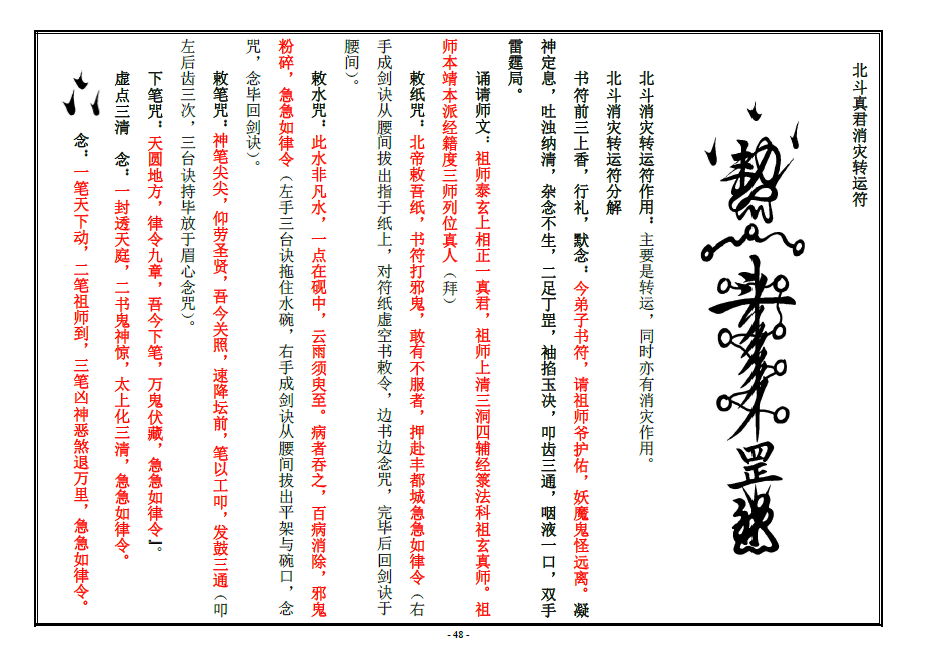 北斗真君消灾转运符
北斗消灾转运符作用：主要是转运，同时亦有消灾作用。
北斗消灾转运符分解
书符前三上香，行礼，默念：今弟子书符，请祖师爷护佑，妖魔鬼怪远离。凝
神定息，吐浊纳清，杂念不生，二足丁罡，袖掐玉决，叩齿三通，咽液一口，双手
雷霆局。
诵请师文：祖师泰玄上相正一真君，祖师上清三洞四辅经箓法科祖玄真师。祖
师本靖本派经籍度三师列位真人（拜）
敕纸咒：北帝敕吾纸，书符打邪鬼，敢有不服者，押赴丰都城急急如律令（右
手成剑诀从腰间拔出指于纸上，对符纸虚空书敕令，边书边念咒，完毕后回剑诀于
腰间）。
敕水咒：此水非凡水，一点在砚中，云雨须臾至。病者吞之，百病消除，邪鬼
粉碎，急急如律令（左手三台诀拖住水碗，右手成剑诀从腰间拔出平架与碗口，念
咒，念毕回剑诀）。
敕笔咒：神笔尖尖，仰劳圣贤，吾今关照，速降坛前，笔以工叩，发鼓三通（叩
左后齿三次，三台诀持毕放于眉心念咒）。
下笔咒：天圆地方，律令九章，吾今下笔，万鬼伏藏，急急如律令』。
虚点三清 念：一封透天庭，二书鬼神惊，太上化三清，急急如律令。
念：一笔天下动，二笔祖师到，三笔凶神恶煞退万里，急急如律令。
- 48 -